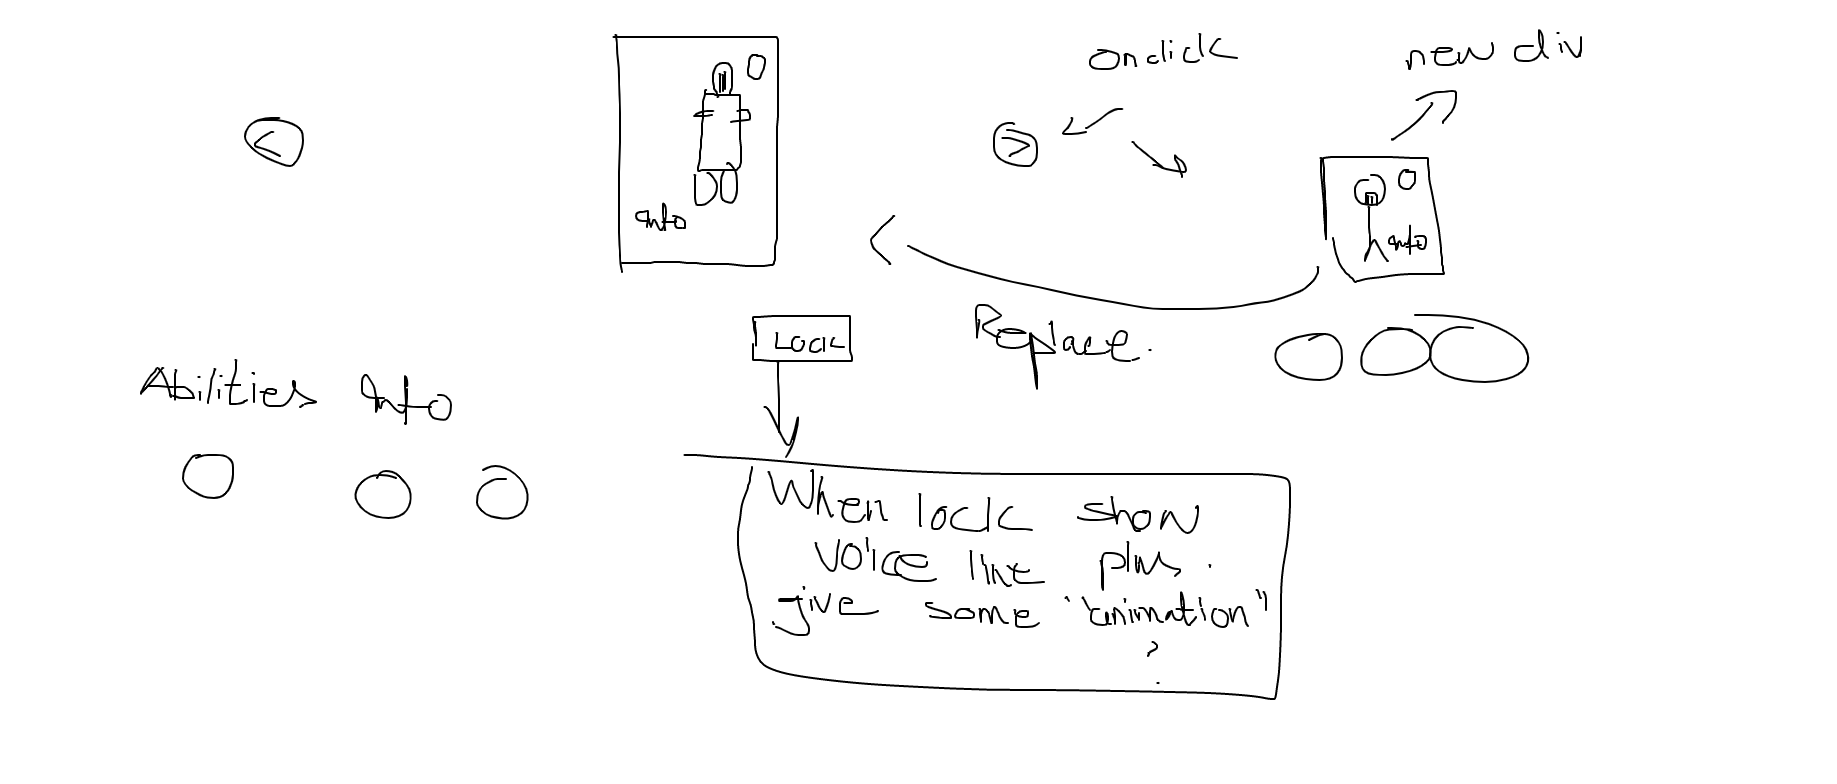 onclick
new div
<
>
info
info
LOCK
Replace.
Abilities Info
When lock show
voice line plus.
give some "animation"
?